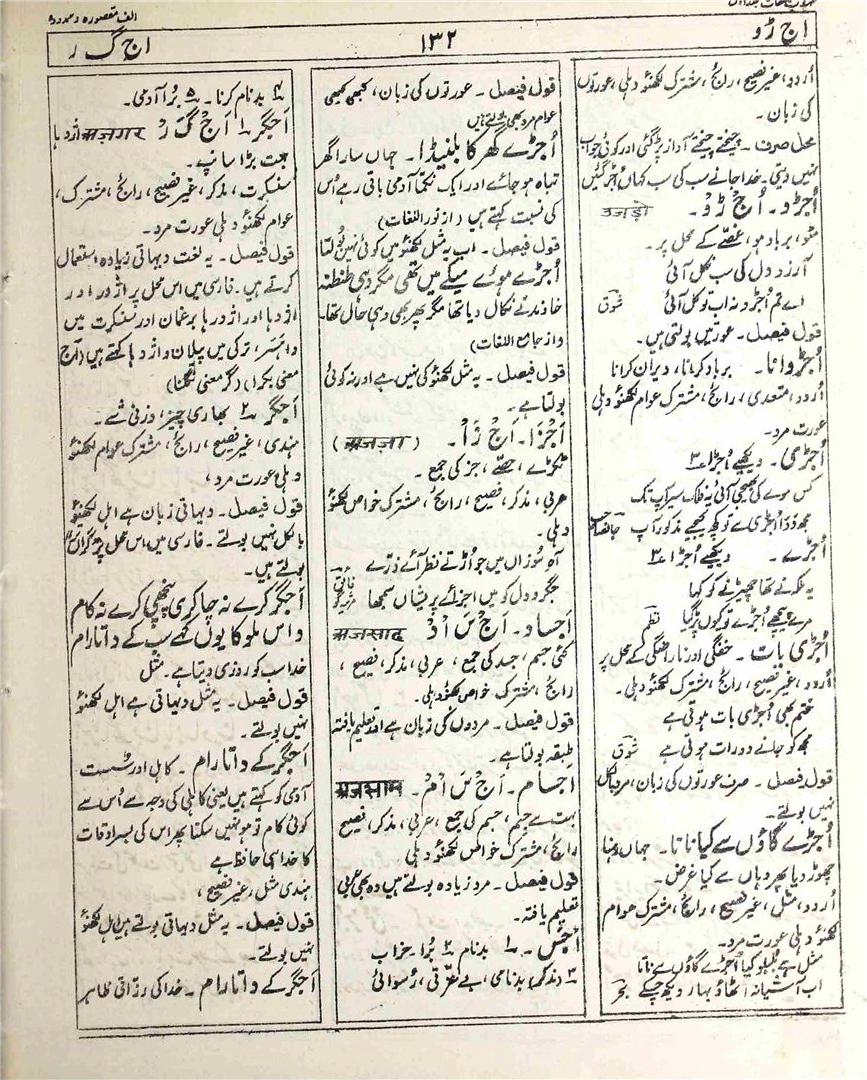 الف مقصورہ و ممدودہ
اج ڑو
۱۳۲
اج گ ر
اُردو، غیر فصیح، رائج، مشترک لکھنؤ دہلی، عورتوں
کی زبان۔
محل صرف۔ چیختے چیختے آواز پڑ گئی اور کوئی جواب
نہیں دیتی۔ خدا جانے سب کی سب کہاں اُجڑ گئیں
اُجڑو۔ اُج ڑو۔ उजड़ो
مٹو، برباد ہو، غصّے کے محل پر۔
آرزو دل کی سب نکل آئی
اے تم اُجڑو نہ اب تو کل آئی شوق
قول فیصل۔ عورتیں بولتی ہیں۔
اُجڑوانا۔ برباد کرنا، ویران کرانا
اُردو، متعدی، رائج، مشترک عوام لکھنؤ دہلی
عورت مرد۔
اُجڑی۔ دیکھیے اُجڑا ۳
کس موے کی بھیجی آئی یہ فلک سیر آپ تک
مجھ دَدا اُجڑی سے تو کچھ کیجیے مذکور آپ جانصاحب
اُجڑے۔ دیکھیے اُجڑا ۳
یہ کس نے تھا چھیڑنے کو کہا
مرے پیچھے اُجڑے تو کیوں پڑ گیا نظر
اُجڑی بات۔ خفگی اور ناراضگی کے محل پر
اُردو، غیر فصیح، رائج، مشترک لکھنؤ دہلی۔
ختم بھی اُجڑی بات ہوتی ہے
مجھ کو جانے دو رات ہوتی ہے شوق
قول فیصل۔ صرف عورتوں کی زبان، مرد بالکل
نہیں بولتے۔
اُجڑے گاؤں سے کیا ناتا۔ جہاں رہنا
چھوڑ دیا پھر وہاں سے کیا غرض۔
اُردو، مثل، غیر فصیح، رائج، مشترک عوام
لکھنؤ دہلی عورت مرد۔
مثل ہے بلبلو کیا اُجڑے گاؤں سے ناتا
اب آشیانہ اٹھاؤ بہار دیکھ چکے بحر
قول فیصل۔ عورتوں کی زبان، کبھی کبھی
عوام مرد بھی بولتے ہیں
اُجڑے گھر کا بلنیڈا۔ جہاں سارا گھر
تباہ ہو جائے اور ایک نکما آدمی باقی رہے اُس
کی نسبت کہتے ہیں (از نور اللغات)
قول فیصل۔ اب یہ مثل لکھنؤ میں کوئی نہیں بولتا
اُجڑے موے میکے میں تھی مگر وہی طنطنہ
خاوند نے نکال دیا تھا مگر پھر بھی وہی حال تھا۔
(از جامع اللغات)
قول فیصل۔ یہ مثل لکھنؤ کی نہیں ہے اور نہ کوئی
بولتا ہے۔
اَجزا۔ اَج زَا۔ (अजज़ा)
ٹکڑے، حصّے، جز کی جمع۔
عربی، مذکر، فصیح، رائج، مشترک خواص لکھنؤ
دہلی۔
آہ سوزاں میں جو اڑتے نظر آئے ذرّے
جگر و دل کو میں اجزائے پریشاں سمجھا
اَجساد۔ اَج سَ ا دْ अजसाद
کئی جسم، جسد کی جمع، عربی، مذکر، فصیح،
رائج، مشترک خواص لکھنؤ دہلی۔
قول فیصل۔ مردوں کی زبان ہے اور تعلیم یافتہ
طبقہ بولتا ہے۔
اجسام۔ اَج سَ ا مْ۔ अजसाम
بہت سے جسم، جسم کی جمع، عربی، مذکر، فصیح
رائج، مشترک خواص لکھنؤ دہلی
قول فیصل۔ مرد زیادہ بولتے ہیں وہ بھی عربی
تعلیم یافتہ۔
اَجَس۔ ۱ بدنام ۲ بُرا۔ خراب
۳ (مذکر) بدنامی، بے عزّتی، رسوائی
۴ بدنام کرنا۔ ۵ بُرا آدمی۔
اَجگر ۱ اَج گَ رْ अजगर اژدہا
بہت بڑا سانپ۔
سنسکرت، مذکر، غیر فصیح، رائج، مشترک،
عوام لکھنؤ دہلی عورت مرد۔
قول فیصل۔ یہ لغت دیہاتی زیادہ استعمال
کرتے ہیں۔ فارسی میں اس محل پر اژدر اور
اژدہا اور اژدرہا برغمان اور سنسکرت میں
ترکی میں اژدہا کہتے ہیں (اَج
معنی بکرا) (گر معنی نگلنا)
اَجگر ۲ بھاری چیز، وزنی شے۔
ہندی، غیر فصیح، رائج، مشترک عوام لکھنؤ
دہلی عورت مرد،
قول فیصل۔ دیہاتی زبان ہے اہل لکھنؤ
بالکل نہیں بولتے۔ فارسی میں اس محل پر گراں
بولتے ہیں۔
اَجگر کرے نہ چاکری پنچھی کرے نہ کام
داس ملوکا یوں کہے سب کے داتا رام
خدا سب کو روزی دیتا ہے۔ مثل
قول فیصل۔ یہ مثل دیہاتی ہے اہل لکھنؤ
نہیں بولتے۔
اَجگر کے داتا رام۔ کاہل اور سُست
آدمی کو کہتے ہیں یعنی کاہلی کی وجہ سے اُس سے
کوئی کام تو ہو نہیں سکتا پھر اس کی بسر اوقات
کا خدا ہی حافظ ہے
ہندی مثل، غیر فصیح،
قول فیصل۔ یہ مثل دیہاتی بولتے ہیں اہل لکھنؤ
نہیں بولتے۔
اَجگر کے داتا رام۔ خدا کی رزّاقی ظاہر